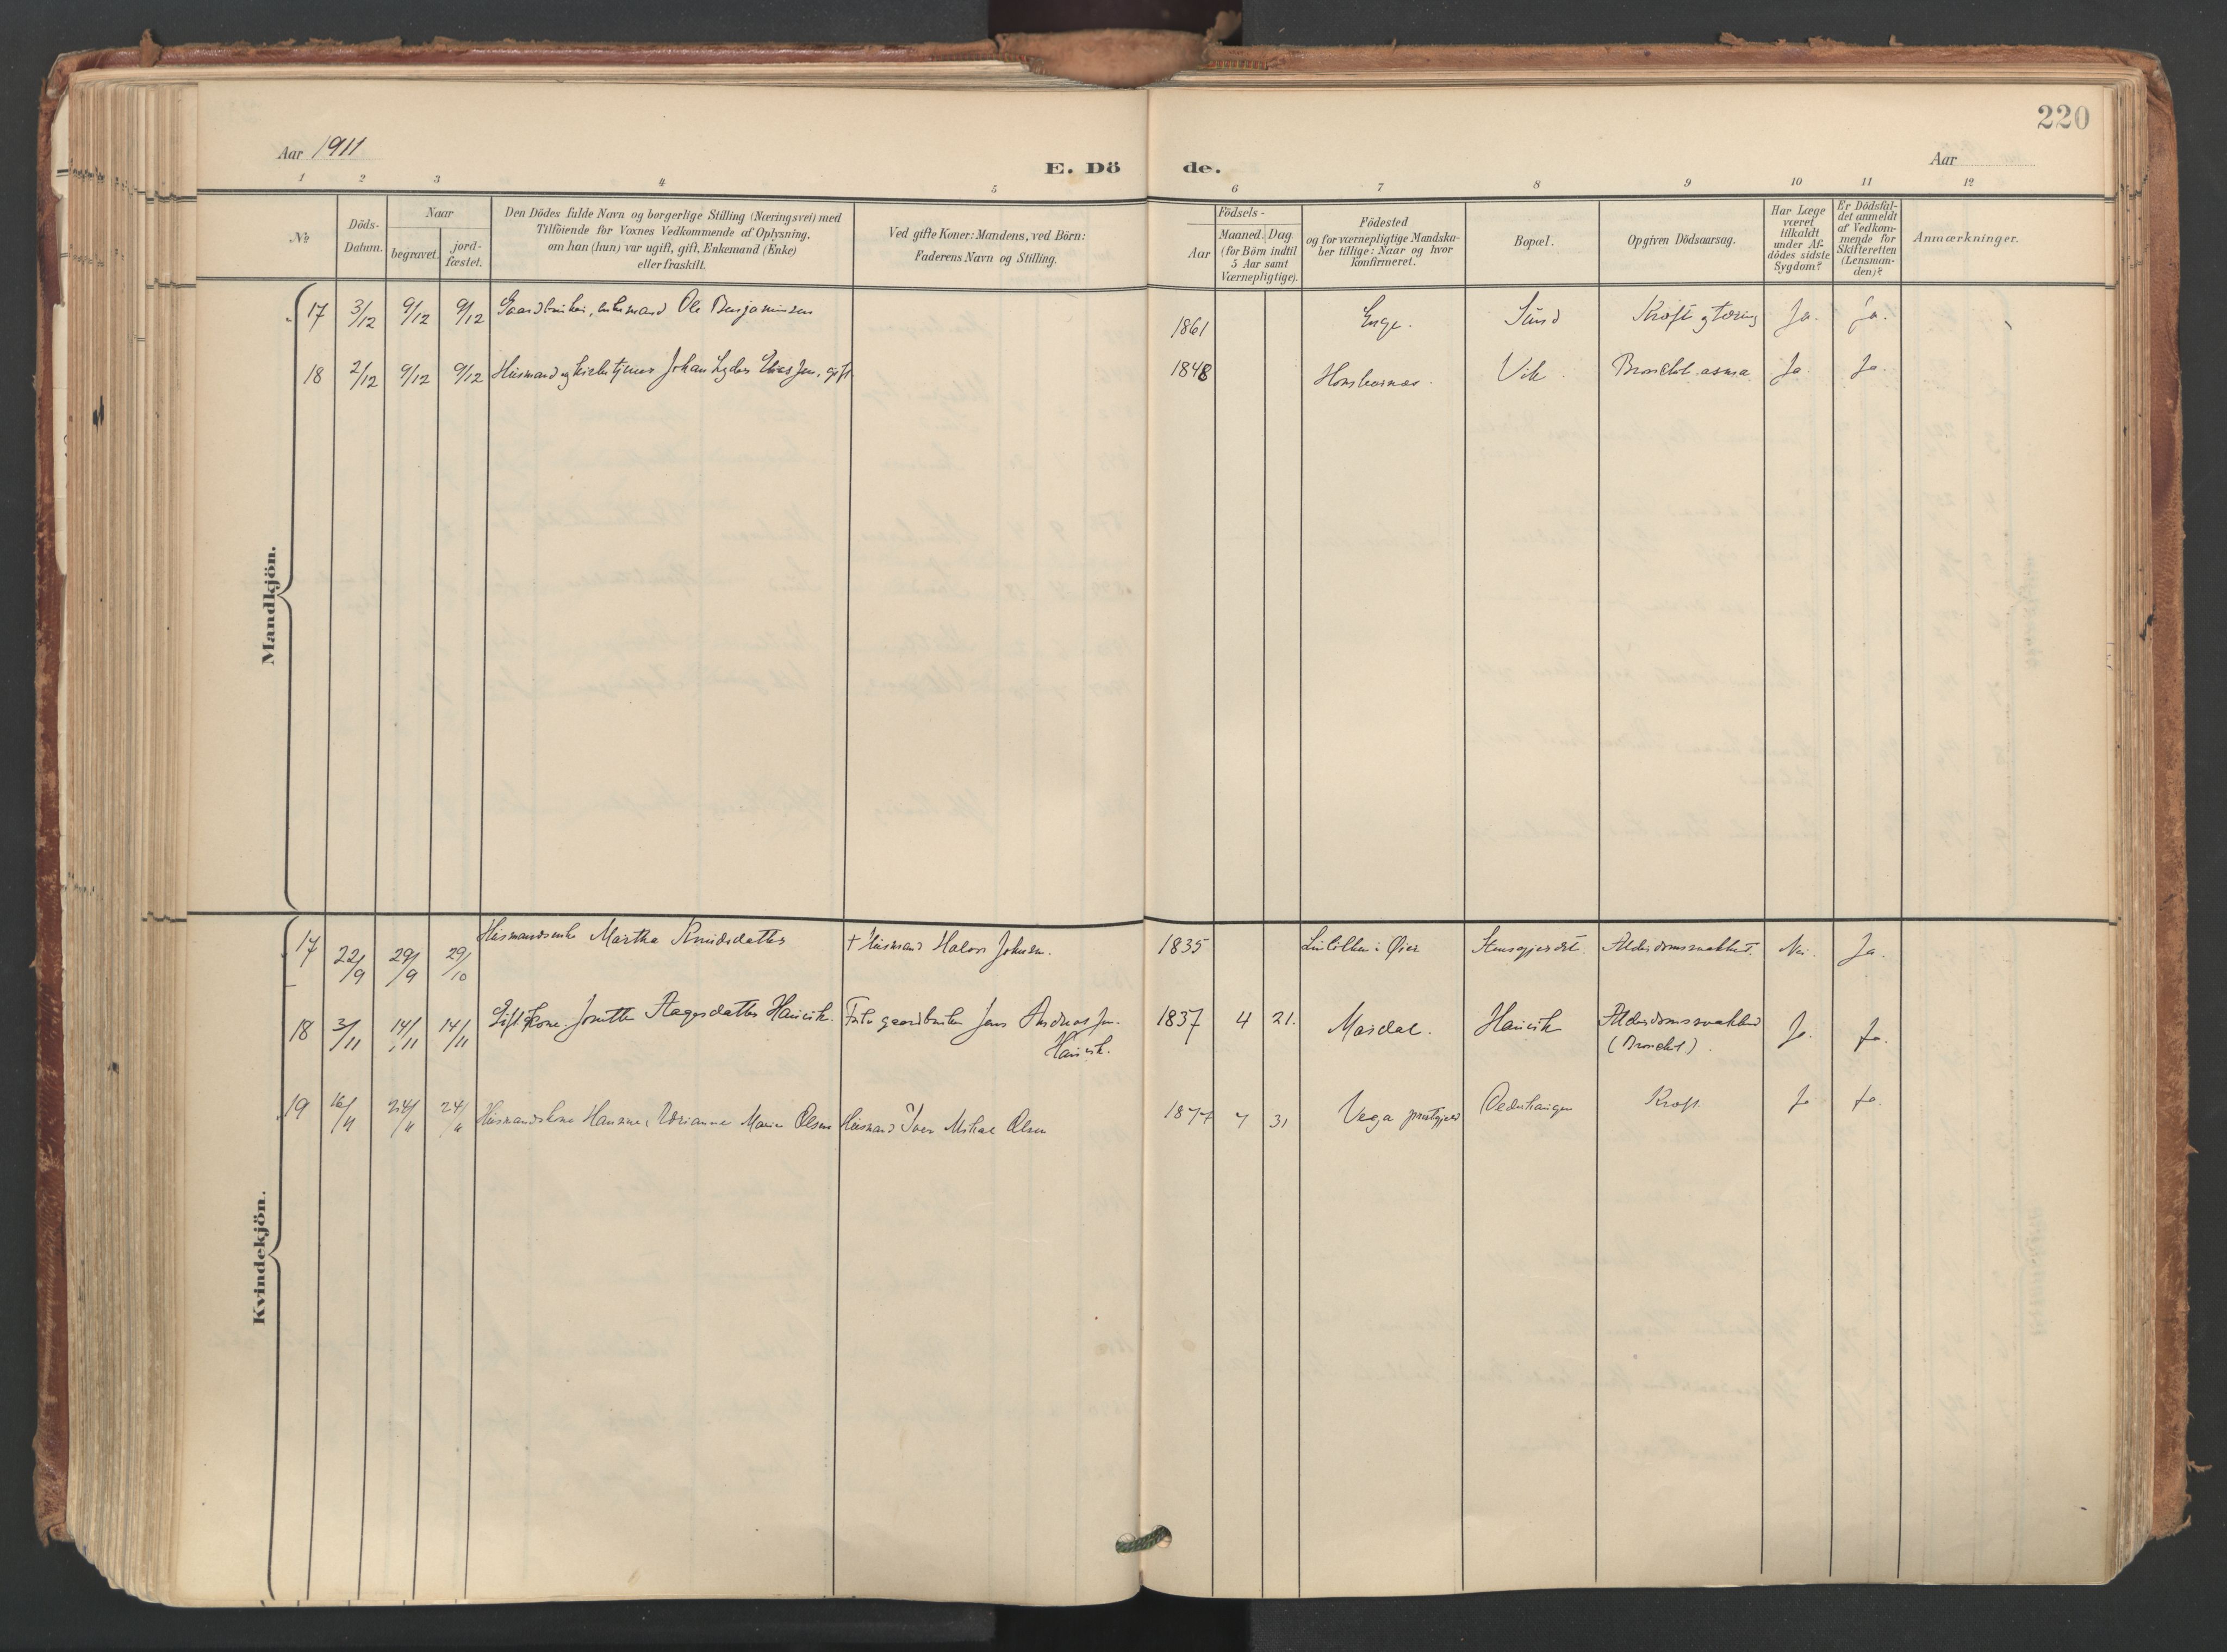 220
Aar 1911
E. Dö de.
Aar
1 2 3 4 5 6 7 8 9 10 11 12
No
Döds-
Datum.
Naar
begravet.
jord-
fæstet.
Den Dödes fulde Navn og borgerlige Stilling (Næringsvei) med
Tilföiende for Voxnes Vedkommende af Oplysning,
om han (hun) var ugift, gift, Enkemand (Enke)
eller fraskilt.
Ved gifte Koner: Mandens, ved Börn:
Faderens Navn og Stilling.
Födsels-
Aar
Maaned. Dag
(for Börn indtil
5 Aar samt
Værnepligtige).
Födested
og for værnepligtige Mandska-
ber tillige: Naar og hvor
konfirmeret.
Bopæl.
Opgiven Dödsaarsag.
Har Læge
været
tilkaldt
under Af-
dödes sidste
Sygdom?
Er Dödsfal-
det anmeldt
af Vedkom-
mende for
Skifteretten
(Lensman-
den)?
Anmærkninger.
Mandkjön.
17 3/12 9/12 9/12 Gaardbruker, enkemand Ole Benjaminsen 1861 Enge. Sund Kræft og tæring Ja. Ja.
18 2/12 9/12 9/12 Husmand og kirketjener Johan Lyder Eliassen, gift 1848 Vik. Bronchit. asma Ja. Ja.
Kvindekjön.
17 22/9 29/9 29/10 Husmandsenke Martha Knudsdatter † Husmand Halvor Johnsen. 1835 i Øier Stensgjerdet. Alderdomssvakhet. Nei. Ja.
18 3/11 14/11 14/11 Gift Kone Hauvik. gaardbruker Jens Andreas Jen. 1837 4 21. Masdal. Hauvik Alderdomssvakhed Ja. Ja.
Hauvik.
(Bronchit).
19 16/11 24/11 24/11 Husmandskone Hansine Adrianna Marie Olsen Husmand Iver Mikal Olsen 1877 7 31 Vega prestegjeld Kræft. Ja Ja.